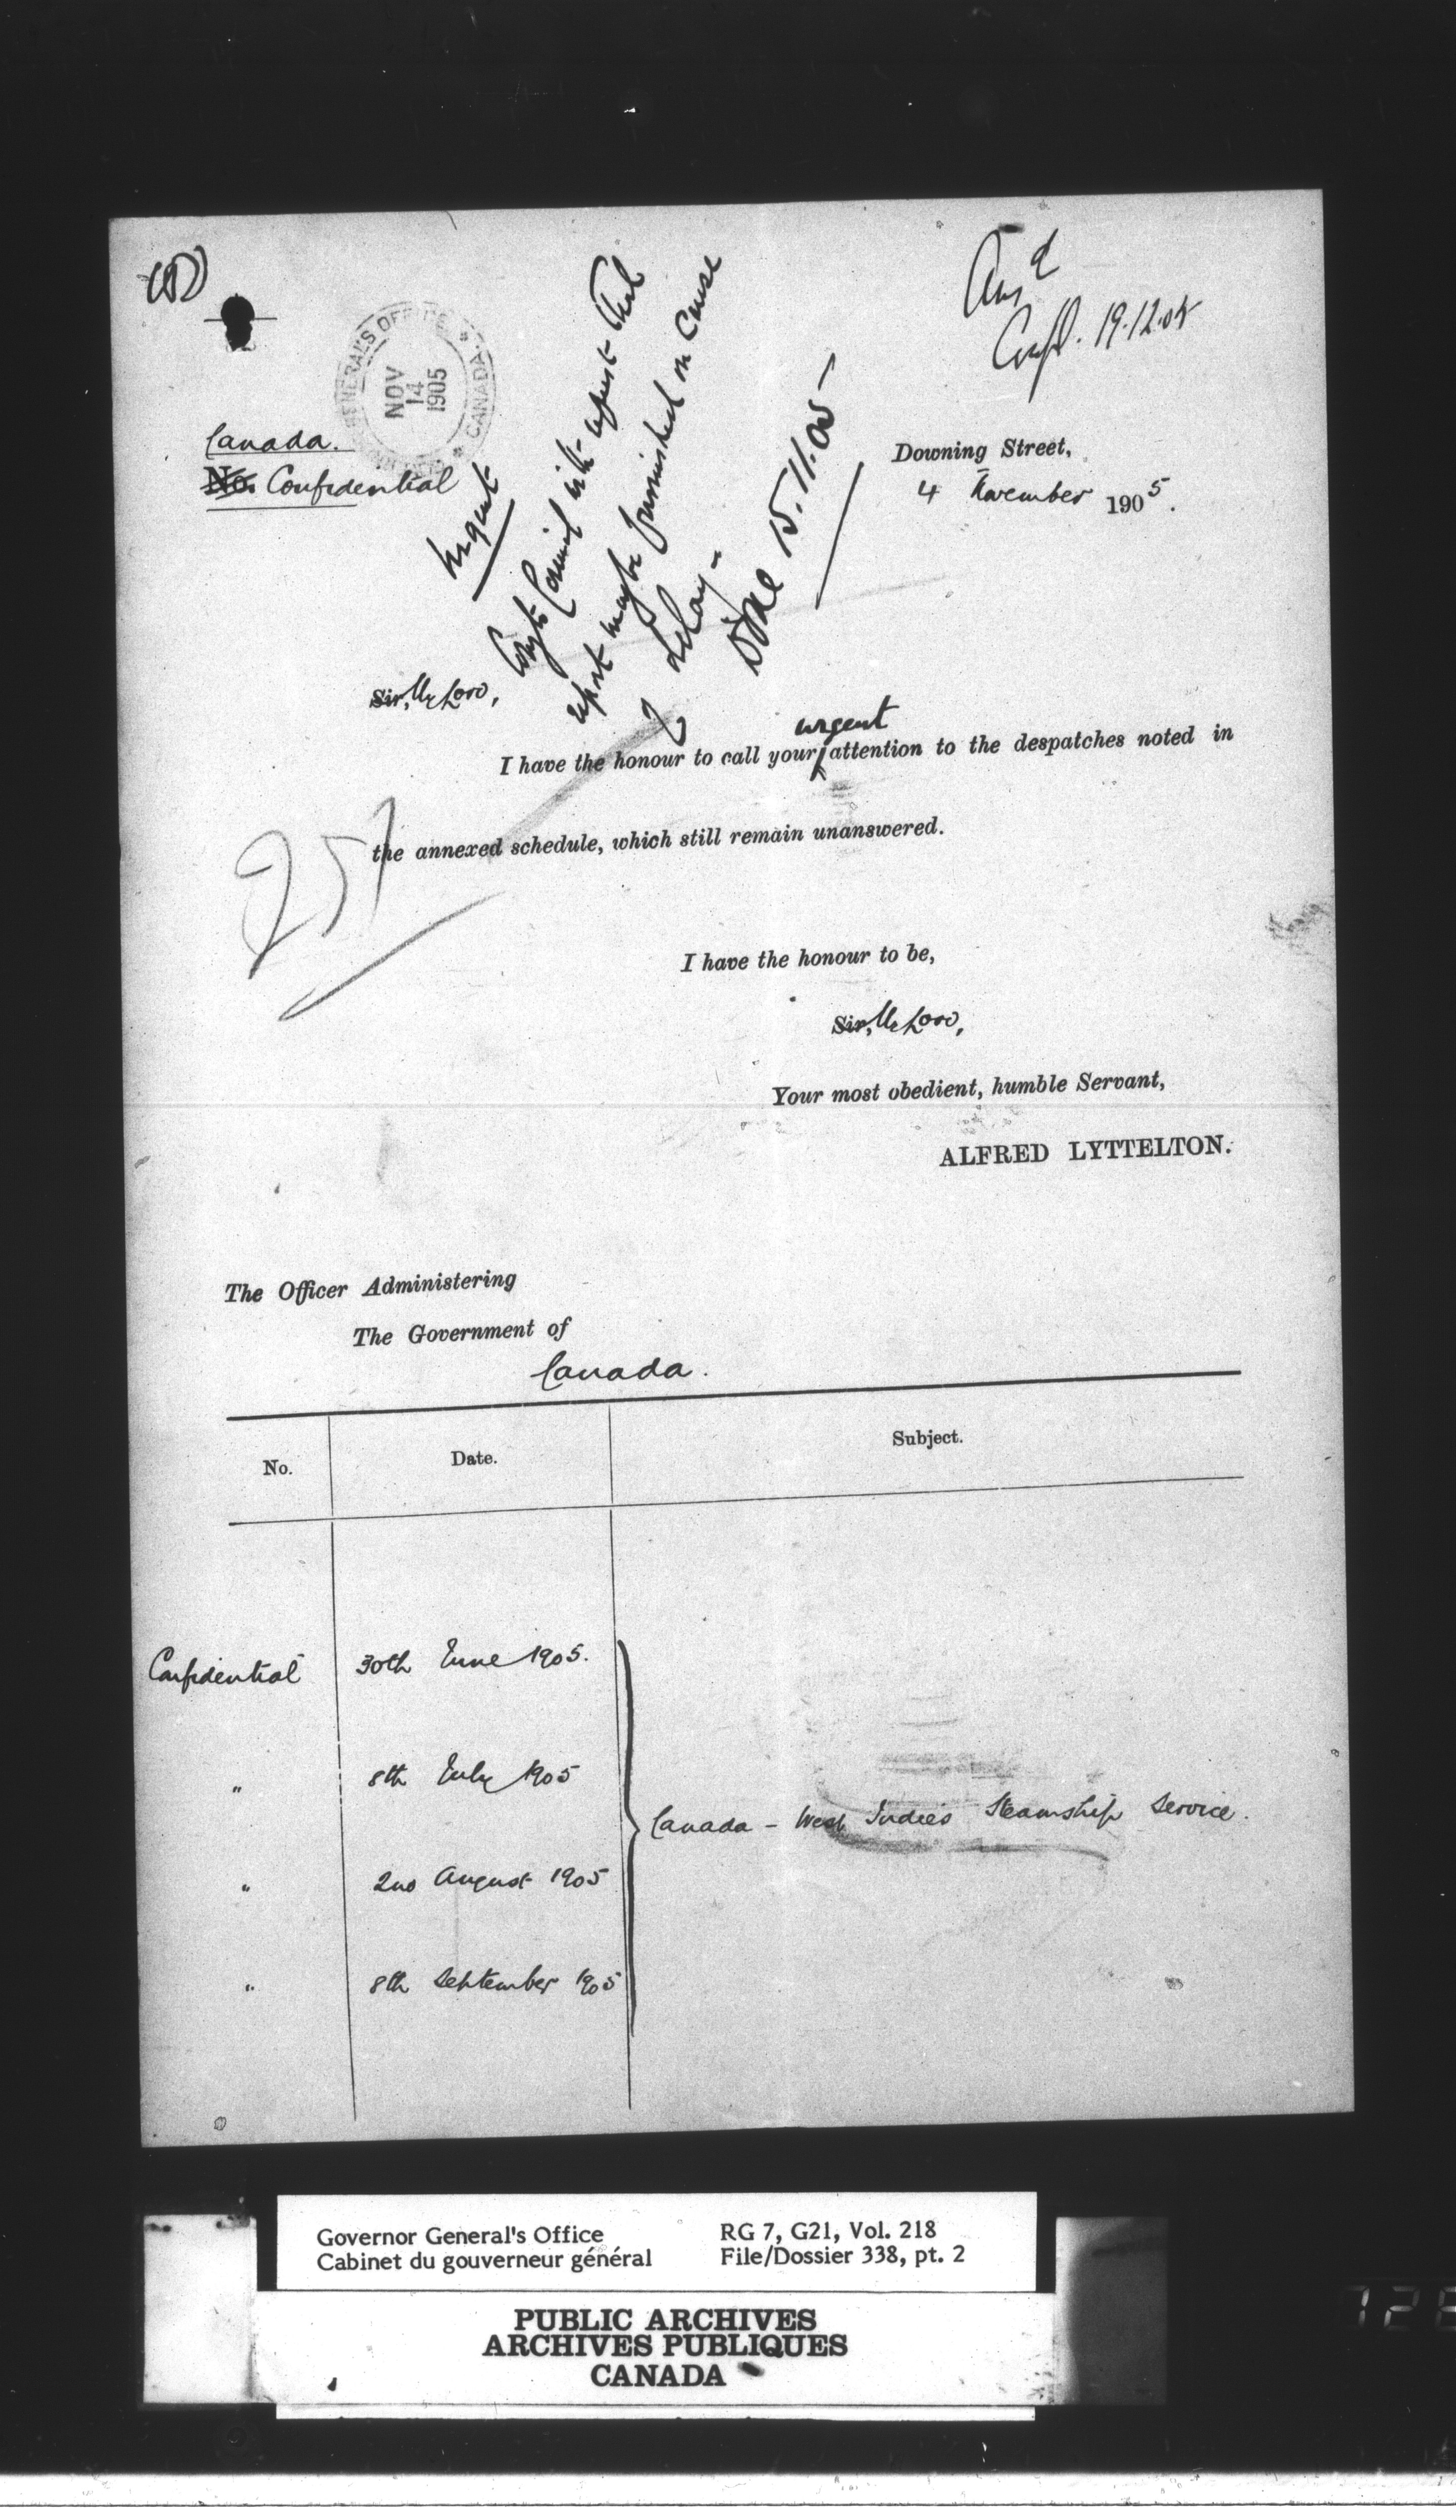 Ansd
Confl. 19.12.05
GENERAL'S OFFICE
NOV
14
1905
CANADA
Canada.
No. Confidential
Downing Street,
4 November 1905.
Urgent
Copy to Council with request that
report may be furnished on cause
of delay-
15.11.05
Sir, My Lord,
urgent
I have the honour to call your attention to the despatches noted in
the annexed schedule, which still remain unanswered.
257
I have the honour to be,
Sir, My Lord,
Your most obedient, humble Servant,
ALFRED LYTTELTON.
The Officer Administering
The Government of
Canada.
No. Date. Subject.
Confidential 30th June 1905.
" 8th July 1905
Canada - West Indies Steamship Service.
" 2nd August 1905
" 8th September 1905
Governor General's Office RG 7, G21, Vol. 218
Cabinet du gouverneur général File/Dossier 338, pt. 2
PUBLIC ARCHIVES
ARCHIVES PUBLIQUES
CANADA